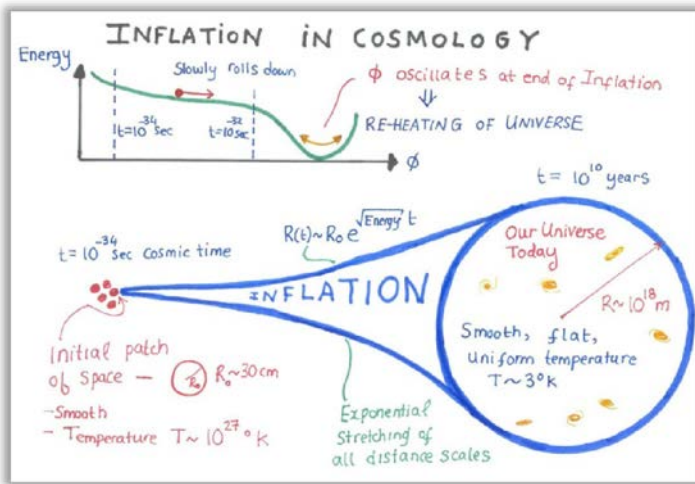 INFLATION IN COSMOLOGY
Energy
Slowly rolls down
ϕ oscillates at end of Inflation
⇓
RE-HEATING OF UNIVERSE
t=10⁻³⁴sec
t=10⁻³²sec
ϕ
t = 10¹⁰ years
R(t)~R₀ e^√Energy t
t=10⁻³⁴ sec cosmic time
INFLATION
Our Universe
Today
R~10¹⁸m
Smooth, flat,
uniform temperature
T~3°K
Initial patch
of space — R₀ R₀~30cm
-Smooth
- Temperature T~10²⁷°K
Exponential
Stretching of
all distance scales